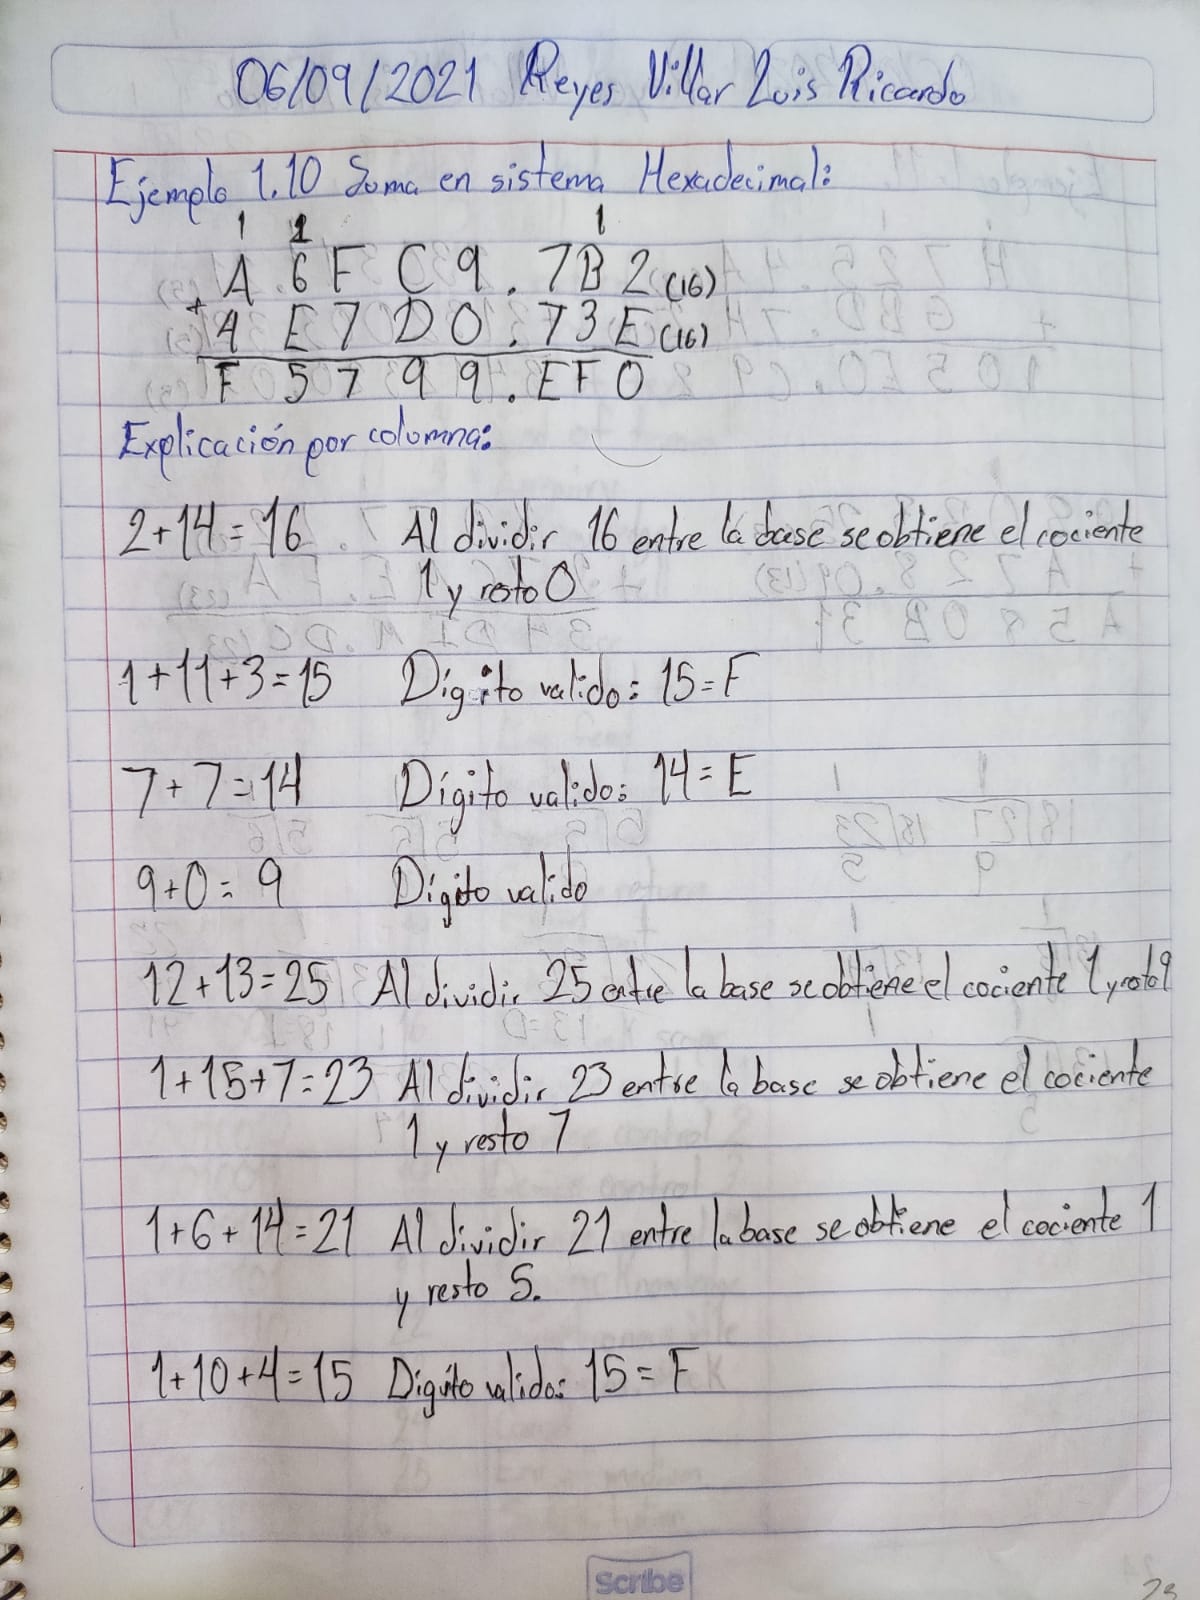 06/09/2021 Reyes Villar Luis Ricardo
Ejemplo 1.10 Suma en sistema Hexadecimal:
1 1 1
A 6 F C 9 . 7 B 2 (16)
+
4 E 7 D 0 . 7 3 E (16)
F 5 7 9 9 . E F 0
Explicación por columna:
2+14=16 Al dividir 16 entre la base se obtiene el cociente
1 y resto 0
1+11+3=15 Dígito valido: 15=F
7+7=14 Dígito valido: 14=E
9+0=9 Dígito valido
12+13=25 Al dividir 25 entre la base se obtiene el cociente 1 y resto 9
1+15+7=23 Al dividir 23 entre la base se obtiene el cociente
1 y resto 7
1+6+14=21 Al dividir 21 entre la base se obtiene el cociente 1
y resto 5.
1+10+4=15 Digito valido: 15=F
Scribe